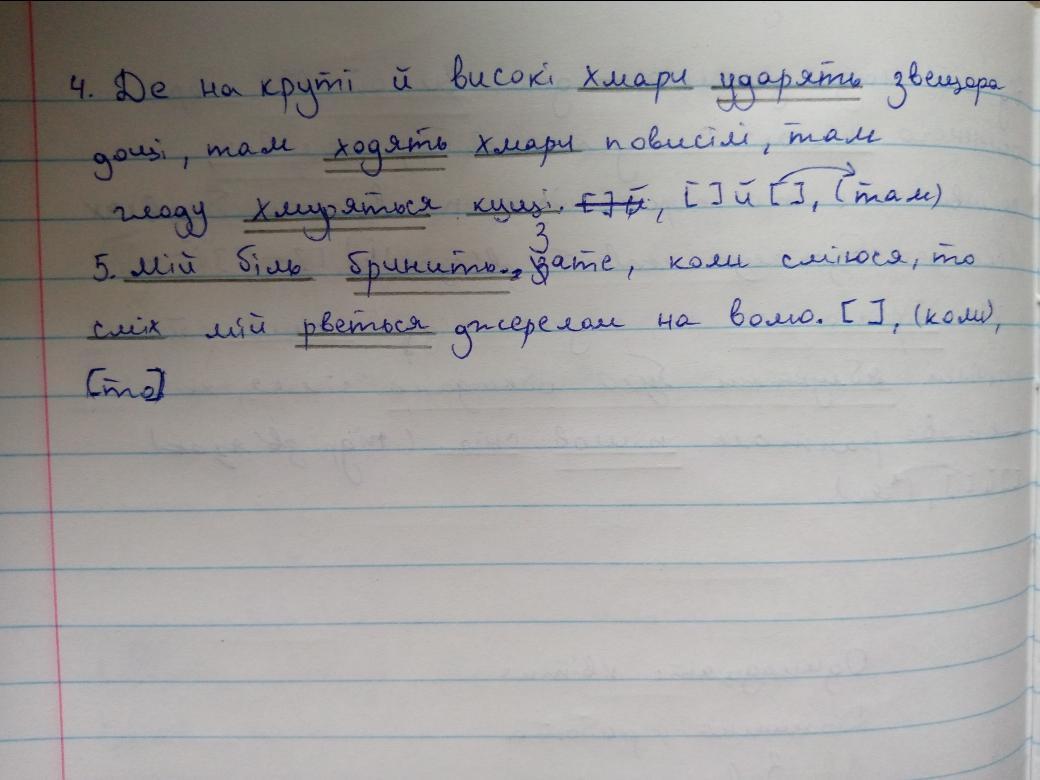 4. Де на круті й високі хмари ударять звещора
дощі, там ходять хмари повисілі, там
глоду хмуряться кущі. [ ] й, [ ] й [ ], (там)
5. Мій біль бринить., Зате, коли сміюся, то
сміх мій рветься джерелам на волю. [ ], (коли),
[то]